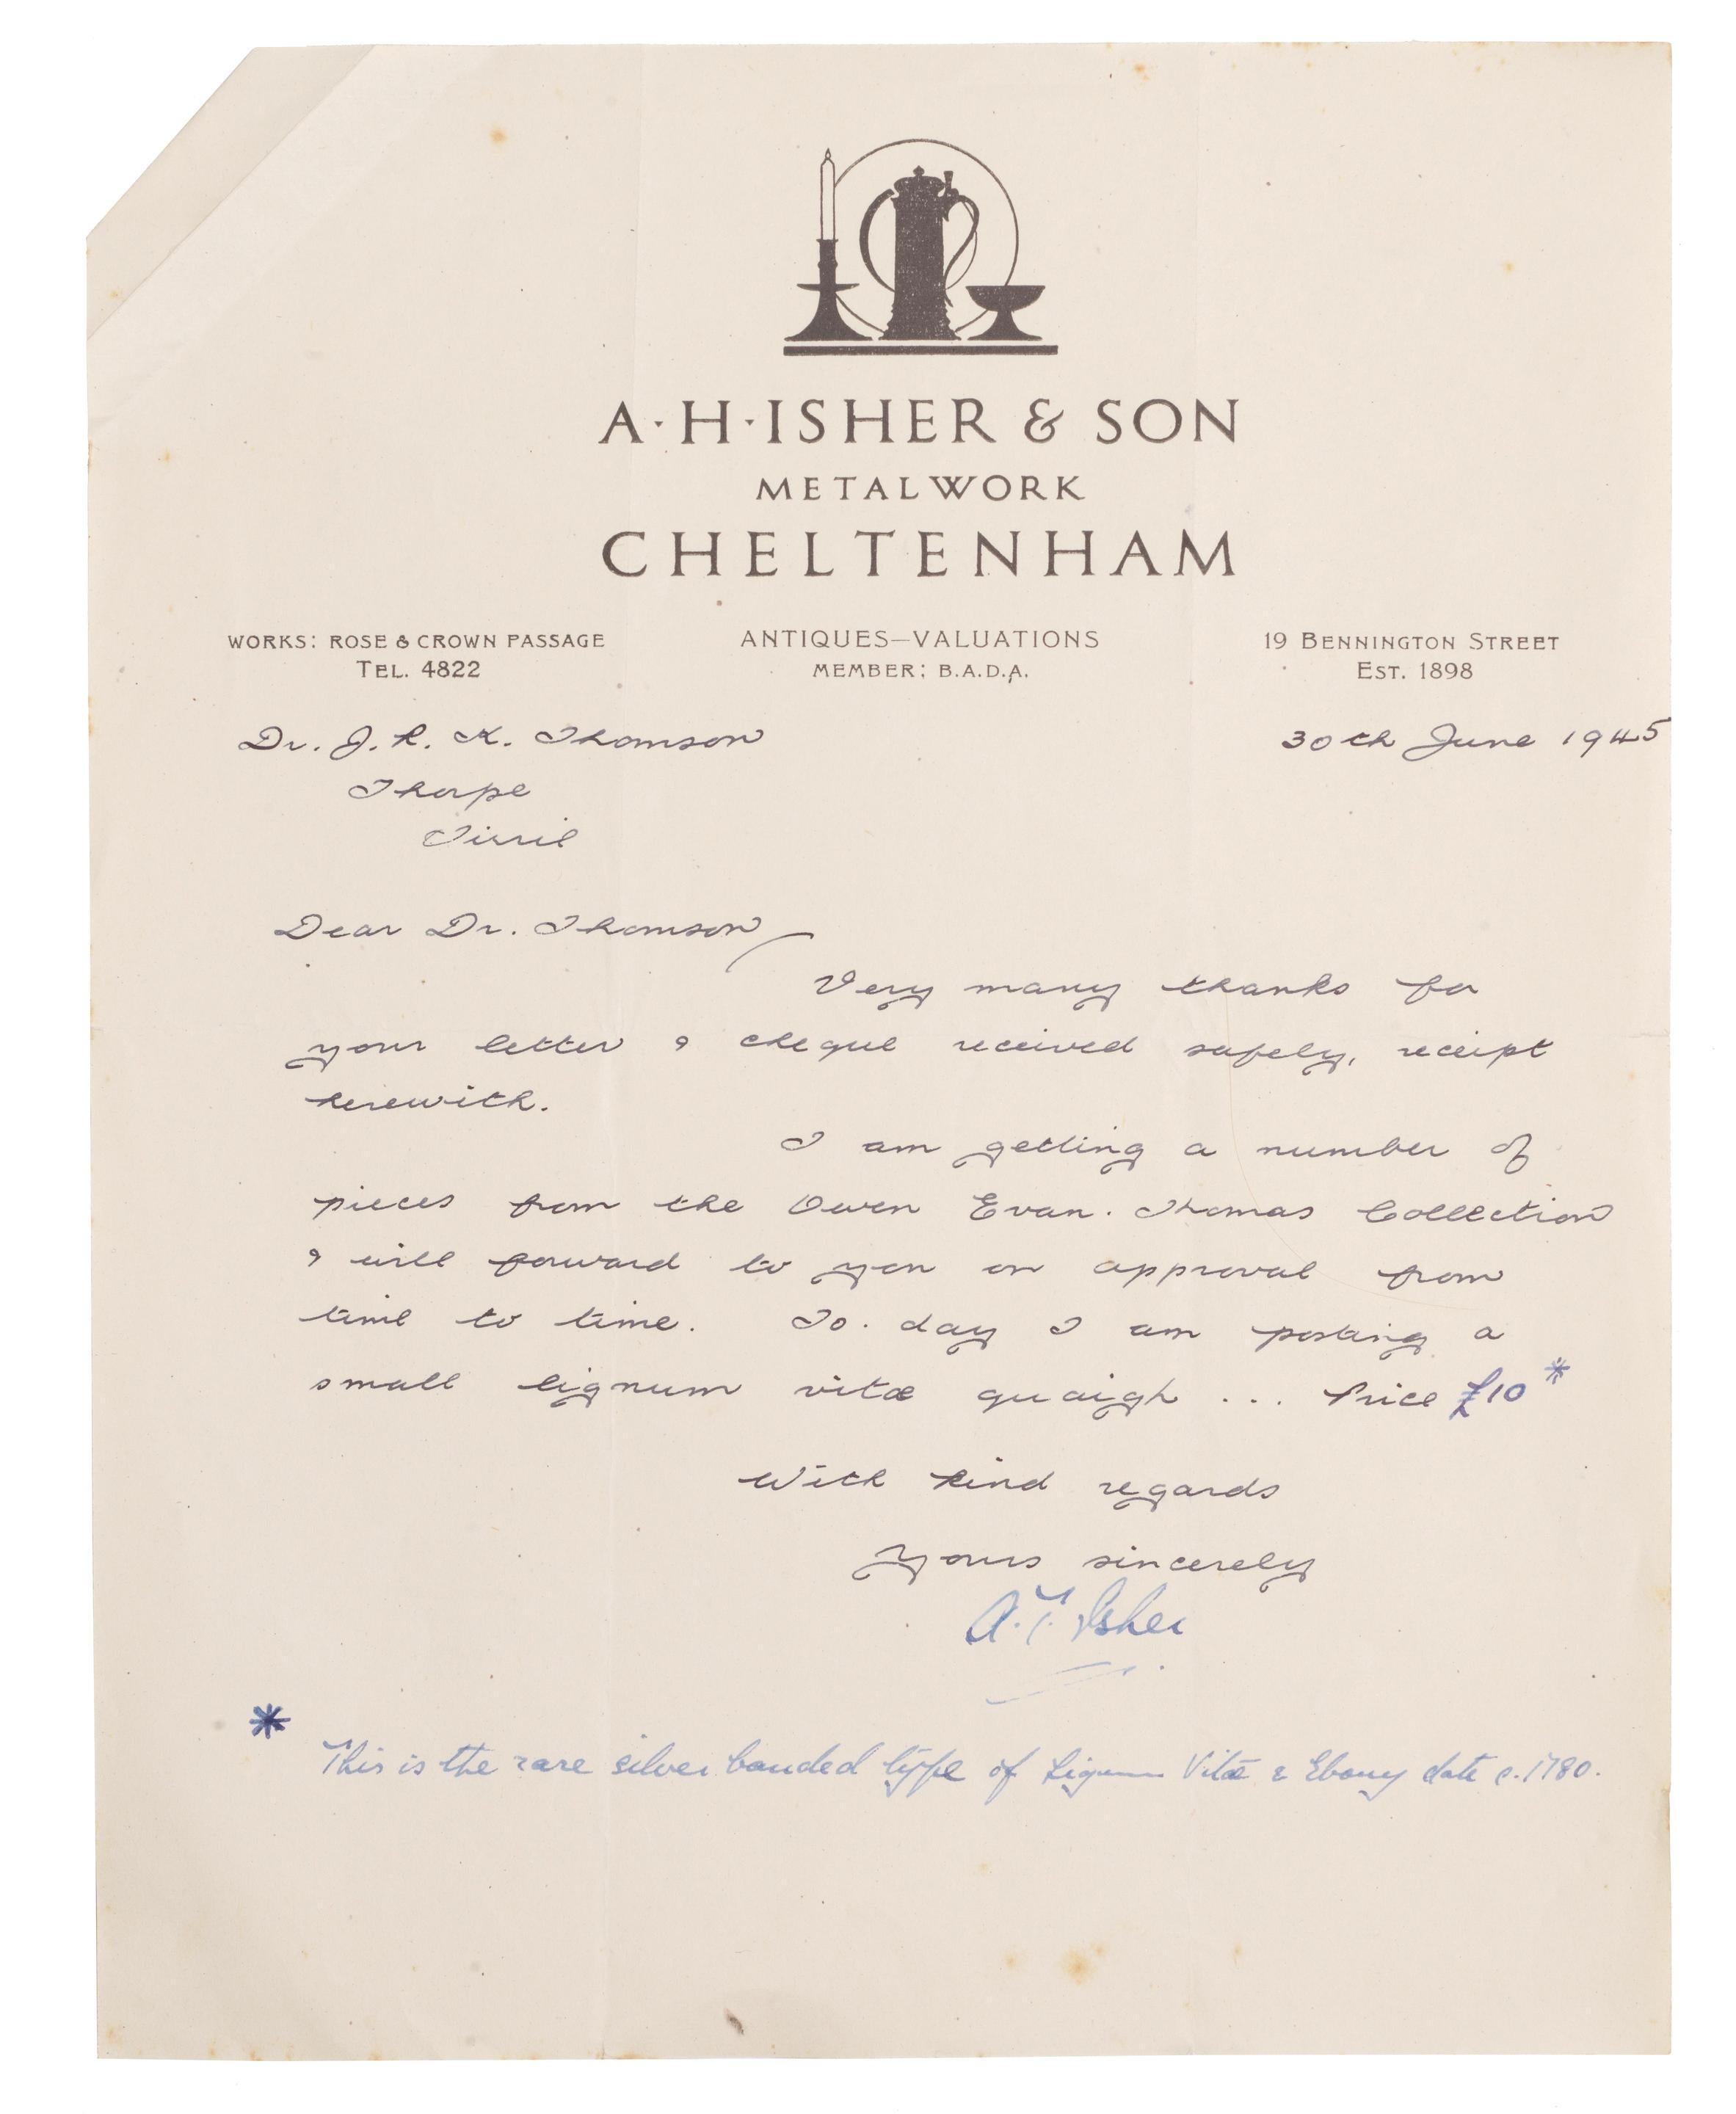 A·H·ISHER & SON
METALWORK
CHELTENHAM
WORKS: ROSE & CROWN PASSAGE
TEL. 4822
ANTIQUES–VALUATIONS
MEMBER: B.A.D.A.
19 BENNINGTON STREET
EST. 1898
Dr. J. R. K. Thomson
30th June 1945
Thorpe
Tirril
Dear Dr. Thomson
Very many thanks for
your letter & cheque received safely, receipt
herewith.
I am getting a number of
pieces from the Owen Evan. Thomas Collection
& will forward to you on approval from
time to time. To. day I am posting a
small lignum vitæ quaigh ... Price £10 *
With kind regards
Yours sincerely
A. T. Isher
* This is the rare silver banded type of Lignum Vitæ & Ebony date c. 1780.